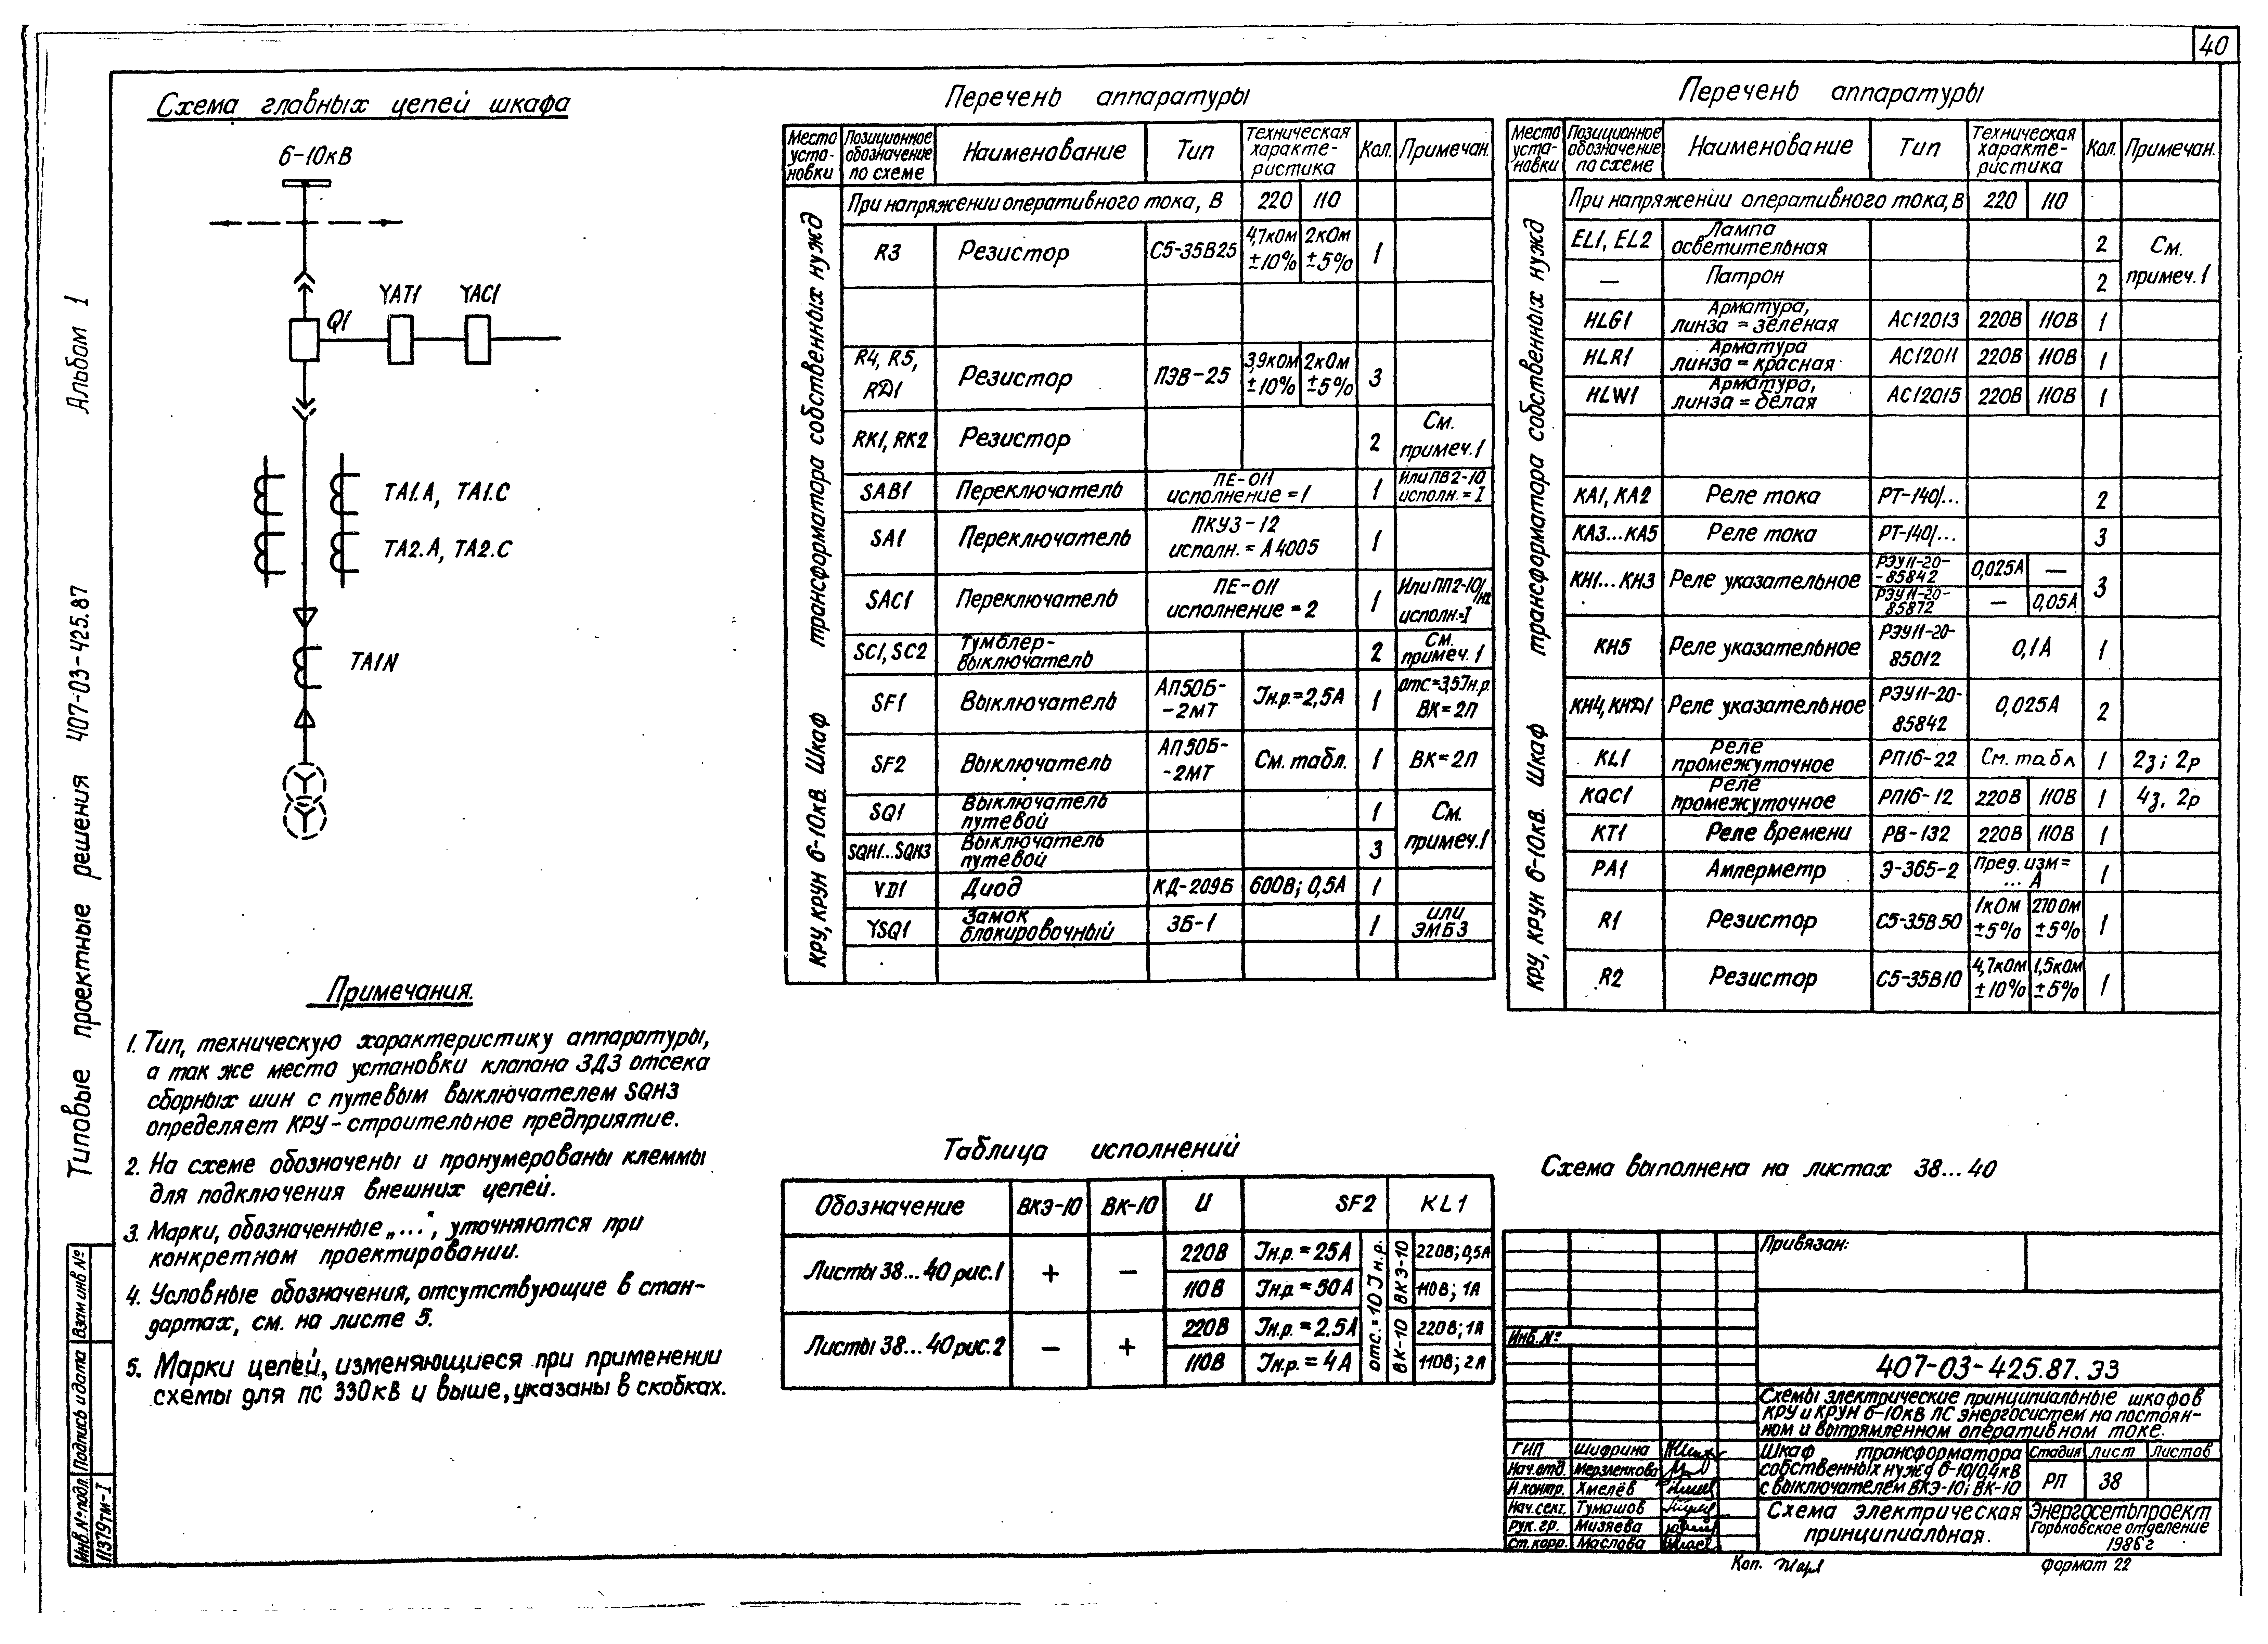 40
Альбом 1
Типовые проектные решения 407-03-425.87
Взам инв №
Подпись и дата
Инв.№ подл.
11379тм-I
Схема главных цепей шкафа
6-10кВ
YAT1
YAC1
Q1
TA1.A, TA1.C
TA2.A, TA2.C
TA1N
Примечания.
1. Тип, техническую характеристику аппаратуры,
а так же место установки клапана ЗДЗ отсека
сборных шин с путевым выключателем SQH3
определяет КРУ-строительное предприятие.
2. На схеме обозначены и пронумерованы клеммы
для подключения внешних цепей.
3. Марки, обозначенные „...", уточняются при
конкретном проектировании.
4. Условные обозначения, отсутствующие в стан-
дартах, см. на листе 5.
5. Марки цепей, изменяющиеся при применении
схемы для ПС 330кВ и выше, указаны в скобках.
Перечень аппаратуры
Место уста-новки | Позиционное обозначение по схеме | Наименование | Тип | Техническая характе-ристика | Кол. | Примечан.
КРУ, КРУН 6-10кВ. Шкаф трансформатора собственных нужд
При напряжении оперативного тока, В | 220 | 110
R3 | Резистор | С5-35В25 | 4,7кОм ±10% | 2кОм ±5% | 1
R4, R5, RД1 | Резистор | ПЭВ-25 | 3,9кОм ±10% | 2кОм ±5% | 3
RK1, RK2 | Резистор | 2 | См. примеч.1
SAB1 | Переключатель | ПЕ-011 исполнение=1 | 1 | Или ПВ2-10 исполн.=I
SA1 | Переключатель | ПКУ3-12 исполн.=А4005 | 1
SAC1 | Переключатель | ПЕ-011 исполнение=2 | 1 | Или ПП2-10/н2 исполн.=I
SC1, SC2 | Тумблер-выключатель | 2 | См. примеч.1
SF1 | Выключатель | АП50Б--2МТ | Iн.р.=2,5А | 1 | отс.=3,5Iн.р. ВК=2П
SF2 | Выключатель | АП50Б--2МТ | См. табл. | 1 | ВК=2П
SQ1 | Выключатель путевой | 1 | См. примеч.1
SQH1...SQH3 | Выключатель путевой | 3
VD1 | Диод | КД-209Б | 600В; 0,5А | 1
YSQ1 | Замок блокировочный | ЗБ-1 | 1 | или ЭМБЗ
Перечень аппаратуры
Место уста-новки | Позиционное обозначение по схеме | Наименование | Тип | Техническая характе-ристика | Кол. | Примечан.
КРУ, КРУН 6-10кВ. Шкаф трансформатора собственных нужд
При напряжении оперативного тока, В | 220 | 110
EL1, EL2 | Лампа осветительная | 2 | См. примеч.1
— | Патрон | 2
HLG1 | Арматура, линза=зеленая | АС12013 | 220В | 110В | 1
HLR1 | Арматура линза=красная | АС12011 | 220В | 110В | 1
HLW1 | Арматура, линза=белая | АС12015 | 220В | 110В | 1
KA1, KA2 | Реле тока | РТ-140/... | 2
KA3...KA5 | Реле тока | РТ-140/... | 3
KH1...KH3 | Реле указательное | РЭУ11-20--85842 | 0,025А | — | 3
РЭУ11-20-85872 | — | 0,05А
KH5 | Реле указательное | РЭУ11-20-85012 | 0,1А | 1
KH4, KHД1 | Реле указательное | РЭУ11-20-85842 | 0,025А | 2
KL1 | Реле промежуточное | РП16-22 | См. табл | 1 | 2з; 2р
KQC1 | Реле промежуточное | РП16-12 | 220В | 110В | 1 | 4з, 2р
KT1 | Реле времени | РВ-132 | 220В | 110В | 1
PA1 | Амперметр | Э-365-2 | Пред. изм= ... А | 1
R1 | Резистор | С5-35В50 | 1кОм ±5% | 270Ом ±5% | 1
R2 | Резистор | С5-35В10 | 4,7кОм ±10% | 1,5кОм ±5% | 1
Таблица исполнений
Обозначение | ВКЭ-10 | ВК-10 | U | SF2 | KL1
Листы 38...40 рис.1 | + | — | 220В | Iн.р.=25А | отс.=10Iн.р. | ВКЭ-10 | 220В; 0,5А
110В | Iн.р.=50А | 110В; 1А
Листы 38...40 рис.2 | — | + | 220В | Iн.р.=2.5А | ВК-10 | 220В; 1А
110В | Iн.р.=4А | 110В; 2А
Схема выполнена на листах 38...40
Привязан:
Инв.№
407-03-425.87.ЭЗ
Схемы электрические принципиальные шкафов
КРУ и КРУН 6-10кВ ПС энергосистем на постоян-
ном и выпрямленном оперативном токе.
ГИП Шифрина
Нач.отд. Мерзленкова
Н.контр. Хмелёв
Нач.сект. Тумашов
Рук.гр. Мизяева
Ст.корр. Маслова
Шкаф трансформатора
собственных нужд 6-10/0,4кВ
с выключателем ВКЭ-10; ВК-10
Стадия | Лист | Листов
РП | 38
Схема электрическая
принципиальная.
Энергосетьпроект
Горьковское отделение
1986г
Коп.
формат 22